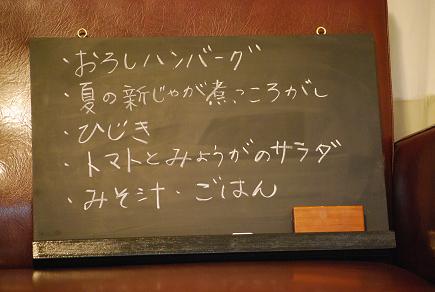 ・おろしハンバーグ
・夏の新じゃが煮っころがし
・ひじき
・トマトとみょうがのサラダ
・みそ汁・ごはん